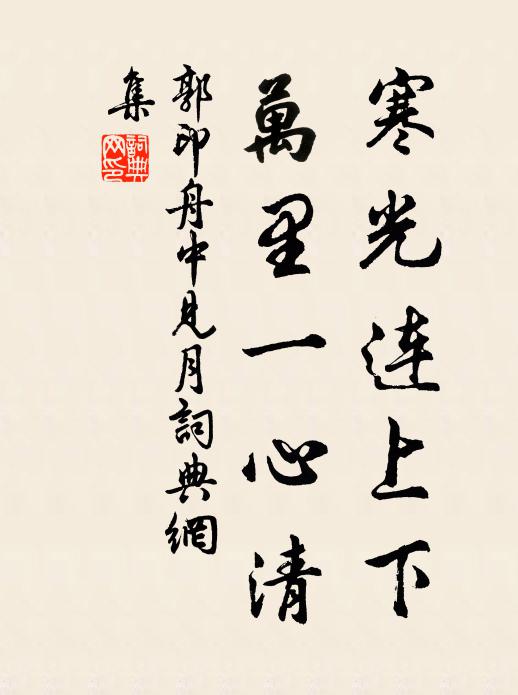 寒光連上下
萬里一心清
郭印舟中見月詞典網
集
詞典
网印